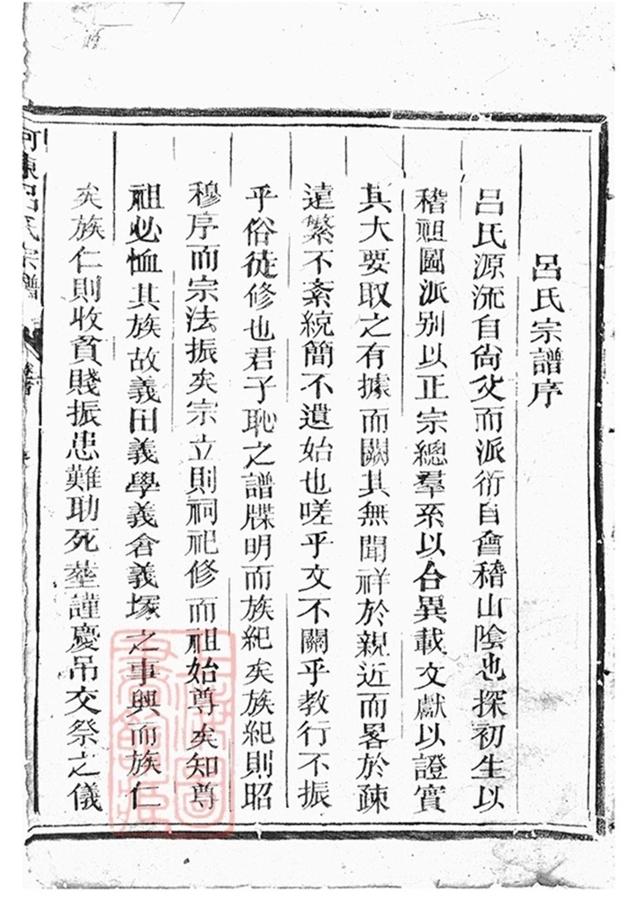 呂氏宗譜序
呂氏源流自尙父而派衍自會稽山陰也探初生以
稽祖圖派别以正宗總羣系以合異載文獻以證實
其大要取之有據而闕其無聞祥於親近而畧於疎
遠繁不紊統簡不遺始也嗟乎文不關乎教行不振
乎俗徒修也君子恥之譜牒明而族紀矣族紀則昭
穆序而宗法振矣宗立則祠祀修而祖始尊矣知尊
祖必恤其族故義田義學義倉義塚之事興而族仁
矣族仁則收貧賤振患難助死塟謹慶吊交祭之儀
河東呂氏宗譜